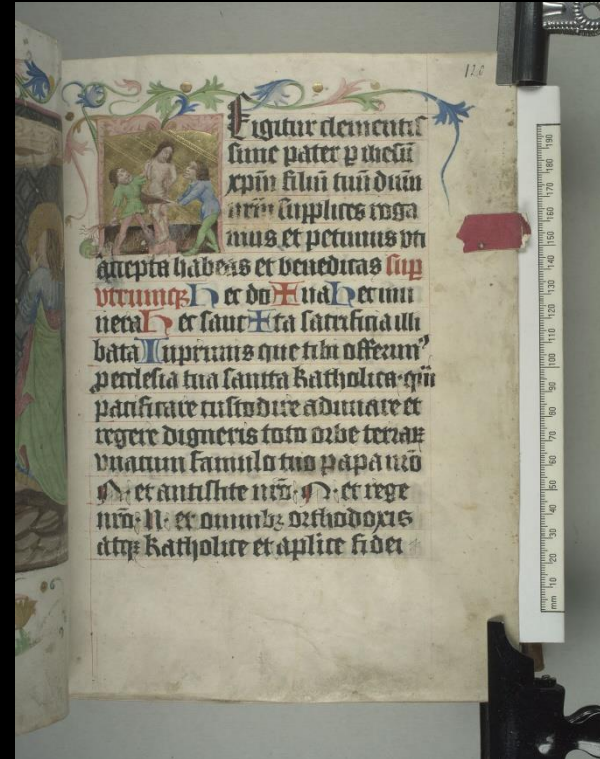 120
E igitur clementis
sime pater p ihesū
xpm filiū tuū dnm
nrm supplices roga
mus et petimus vti
accepta habeas et benedicas sup
vtrumqꝫ Hec do✠na Hec mu
nera Hec sanc✠ta sacrificia illi
bata Inprimis que tibi offerimꝰ
p ecclesia tua sancta katholica · quā
pacificare custodire adunare et
regere digneris toto orbe terraꝝ
vnacum famulo tuo papa nrō
N · et antistite nrō · N · et rege
nrō · N · et omnibꝫ orthodoxis
atqꝫ katholice et aplice fidei
mm 10 20 30 40 50 60 70 80 90 100 110 120 130 140 150 160 170 180 190